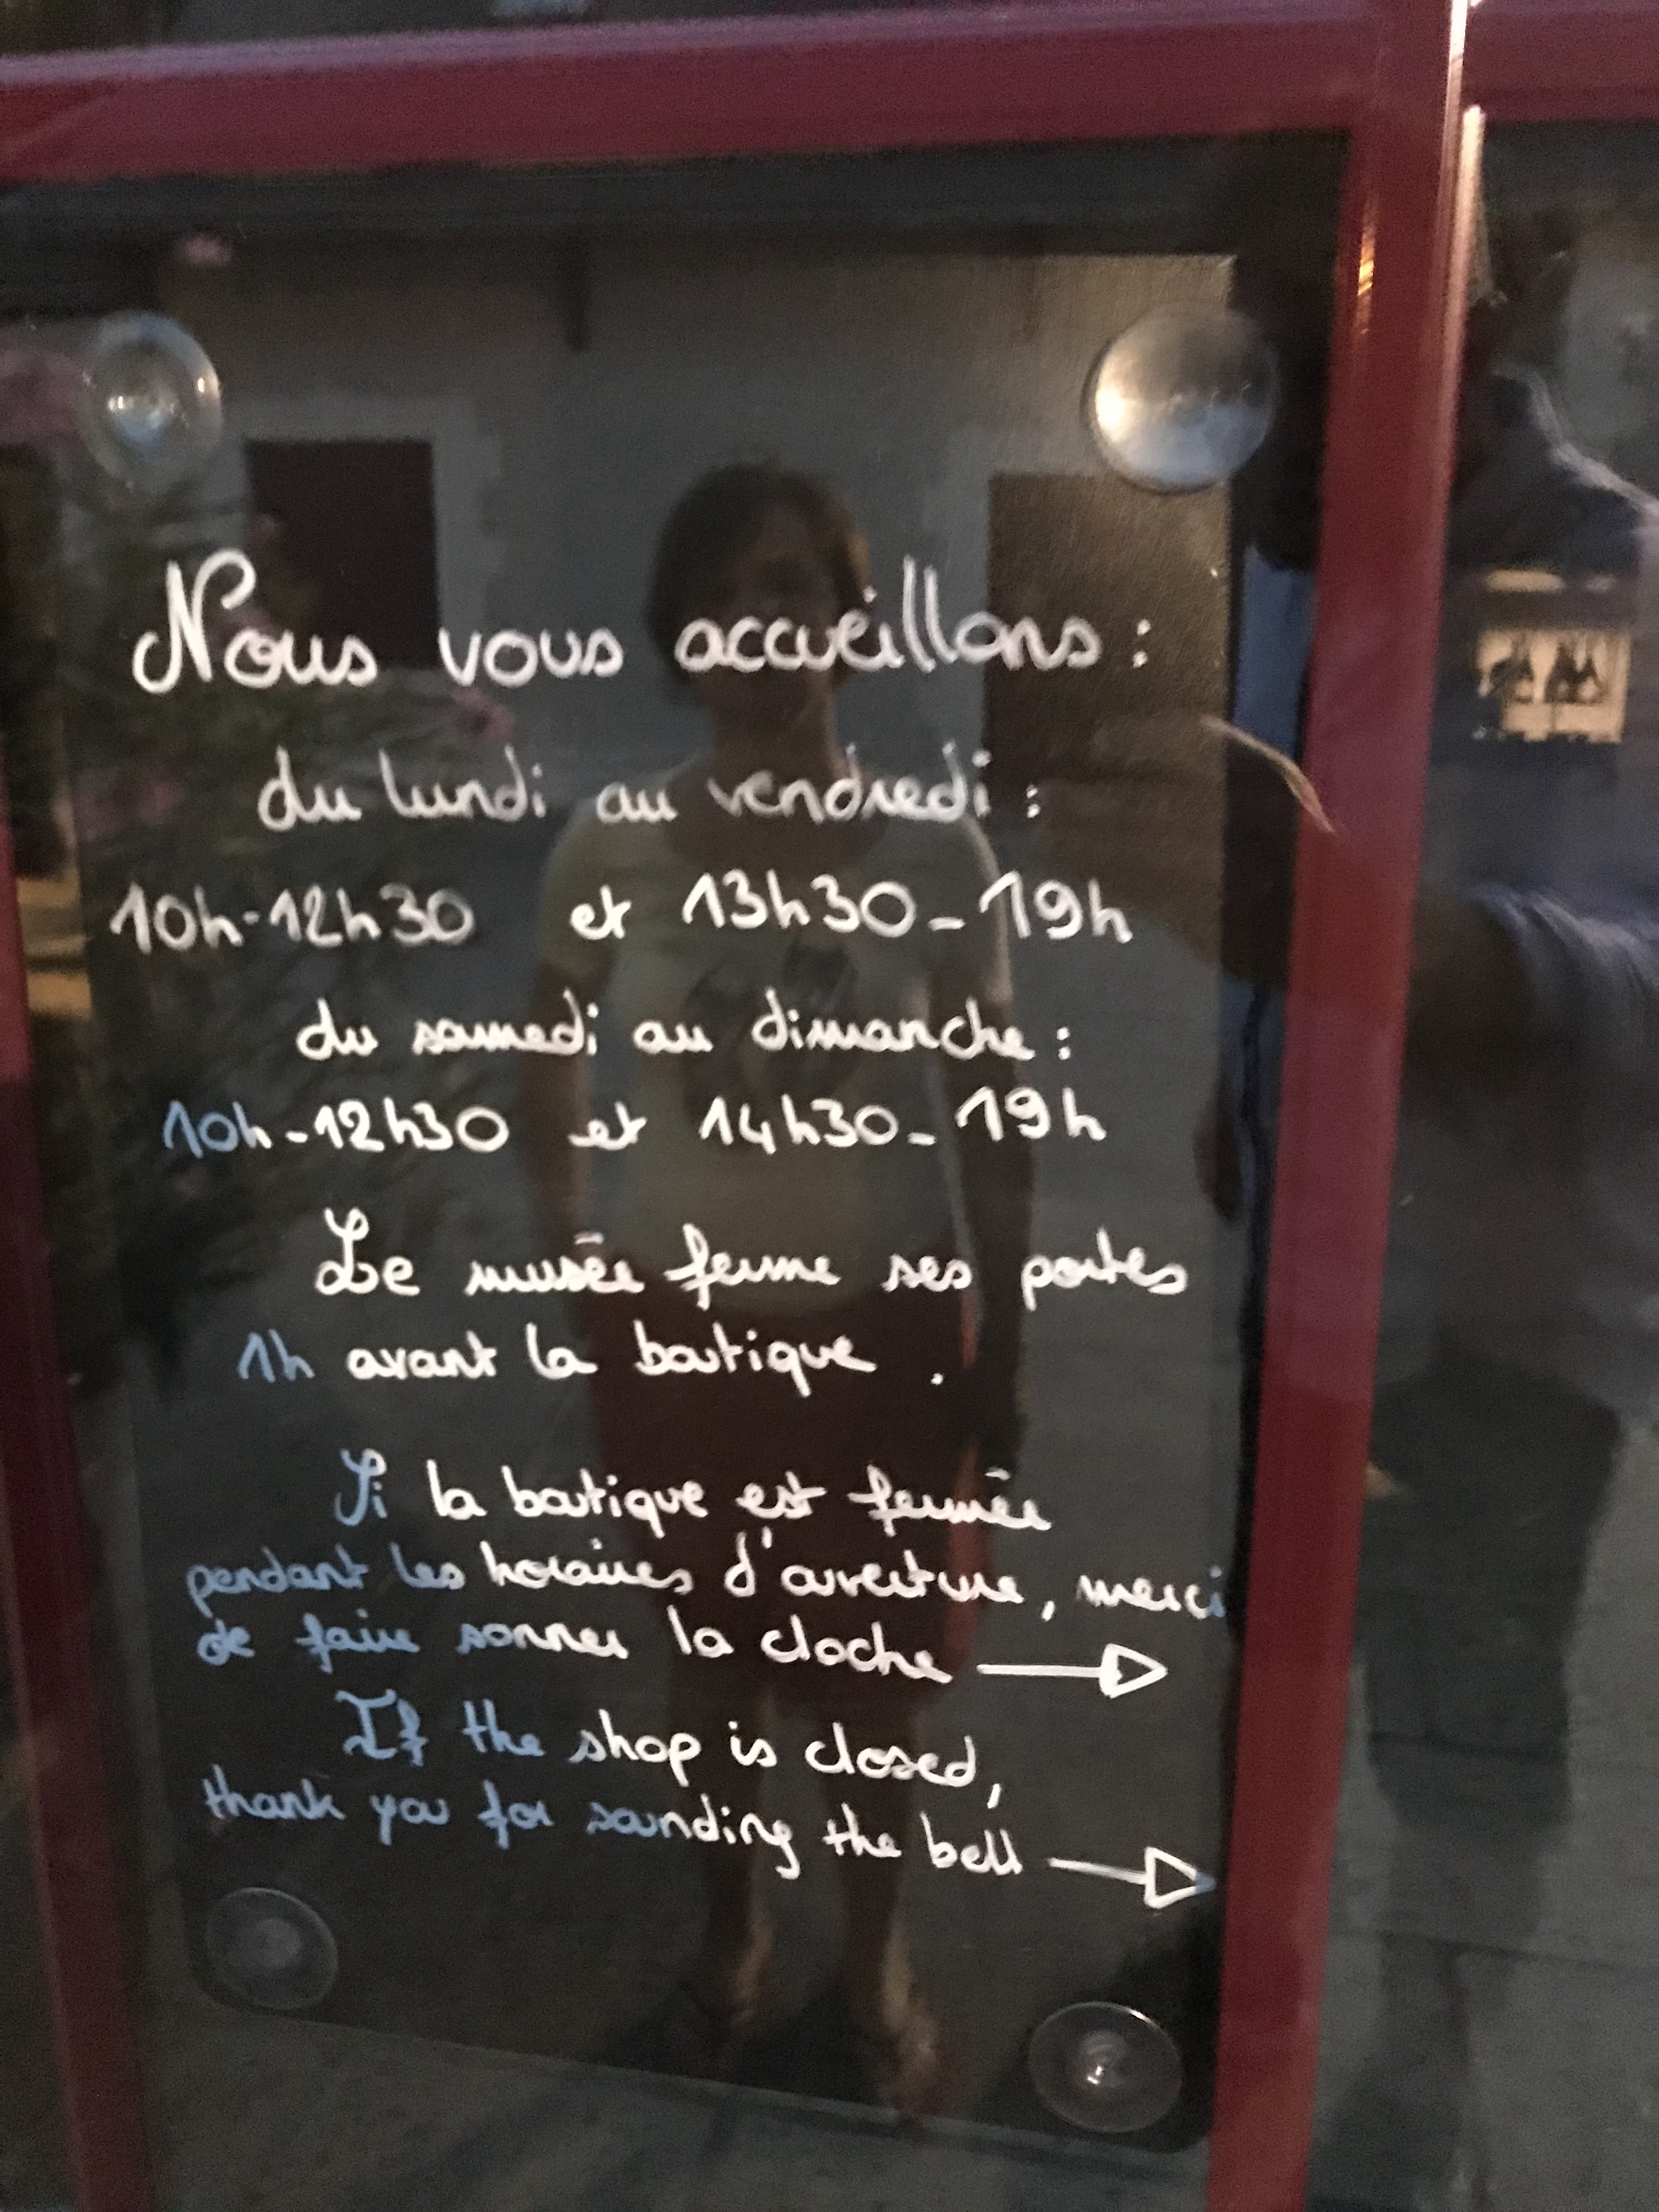 Nous vous accueillons :
du lundi au vendredi :
10h-12h30 et 13h30-19h
du samedi au dimanche :
10h-12h30 et 14h30-19h
Le musée ferme ses portes
1h avant la boutique .
Si la boutique est fermée
pendant les horaires d'ouverture, merci
de faire sonner la cloche
If the shop is closed,
thank you for sounding the bell